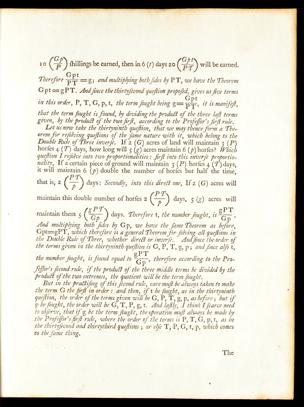 10 (Gpt/P) shillings be earned, then in 6 (t) days 20 (Gpt/P) will be earned.
Therefore Gpt/PT = g; and multiplying both sides by PT, we have the Theorem
Gpt = gPT. And since the thirteenth question proposed, gives us five terms
in this order, P, T, G, p, t, the term sought being g = Gpt/PT, it is manifest,
that the term sought is found, by dividing the product of the three last terms
given, by the product of the two first, according to the Professor's first rule.
Let us now take the thirtieth question, that we may thence form a Theorem
for resolving questions of the same nature with it, which belong to the
Double Rule of Three inverse. If 2 (G) acres of land will maintain 3 (P)
horses 4 (T) days, how long will 5 (g) acres maintain 6 (p) horses? Which
question I resolve into two proportionalities: first into this inverse proportionality,
If a certain piece of ground will maintain 3 (P) horses 4 (T) days,
it will maintain 6 (p) double the number of horses but half the time,
that is, 2 (PT/p) days: Secondly, into this direct one, If 2 (G) acres will
maintain this double number of horses 2 (PT/p) days, 5 (g) acres will
maintain them 5 (gPT/Gp) days. Therefore t, the number sought, is gPT/Gp.
And multiplying both sides by Gp, we have the same Theorem as before,
Gpt = gPT, which therefore is a general Theorem for solving all questions in
the Double Rule of Three, whether direct or inverse. And since the order of
the terms given in the thirtieth question is G, P, T, g, p; and since also t,
the number sought, is found equal to gPT/Gp, therefore according to the Professor's
second rule, if the product of the three middle terms be divided by the
product of the two extremes, the quotient will be the term sought.
But in the practising of this second rule, care must be always taken to make
the term G the first in order: and then, if t be sought, as in the thirtieth
question, the order of the terms given will be G, P, T, g, p, as before; but if
p be sought, the order will be G, T, P, g, t. And lastly, I think I scarce need
to observe, that if g be the term sought, the operation must always be made by
the Professor's first rule, where the order of the terms is P, T, G, p, t, as in
the thirteenth and thirtythird questions; or else T, P, G, t, p, which comes
to the same thing.
The